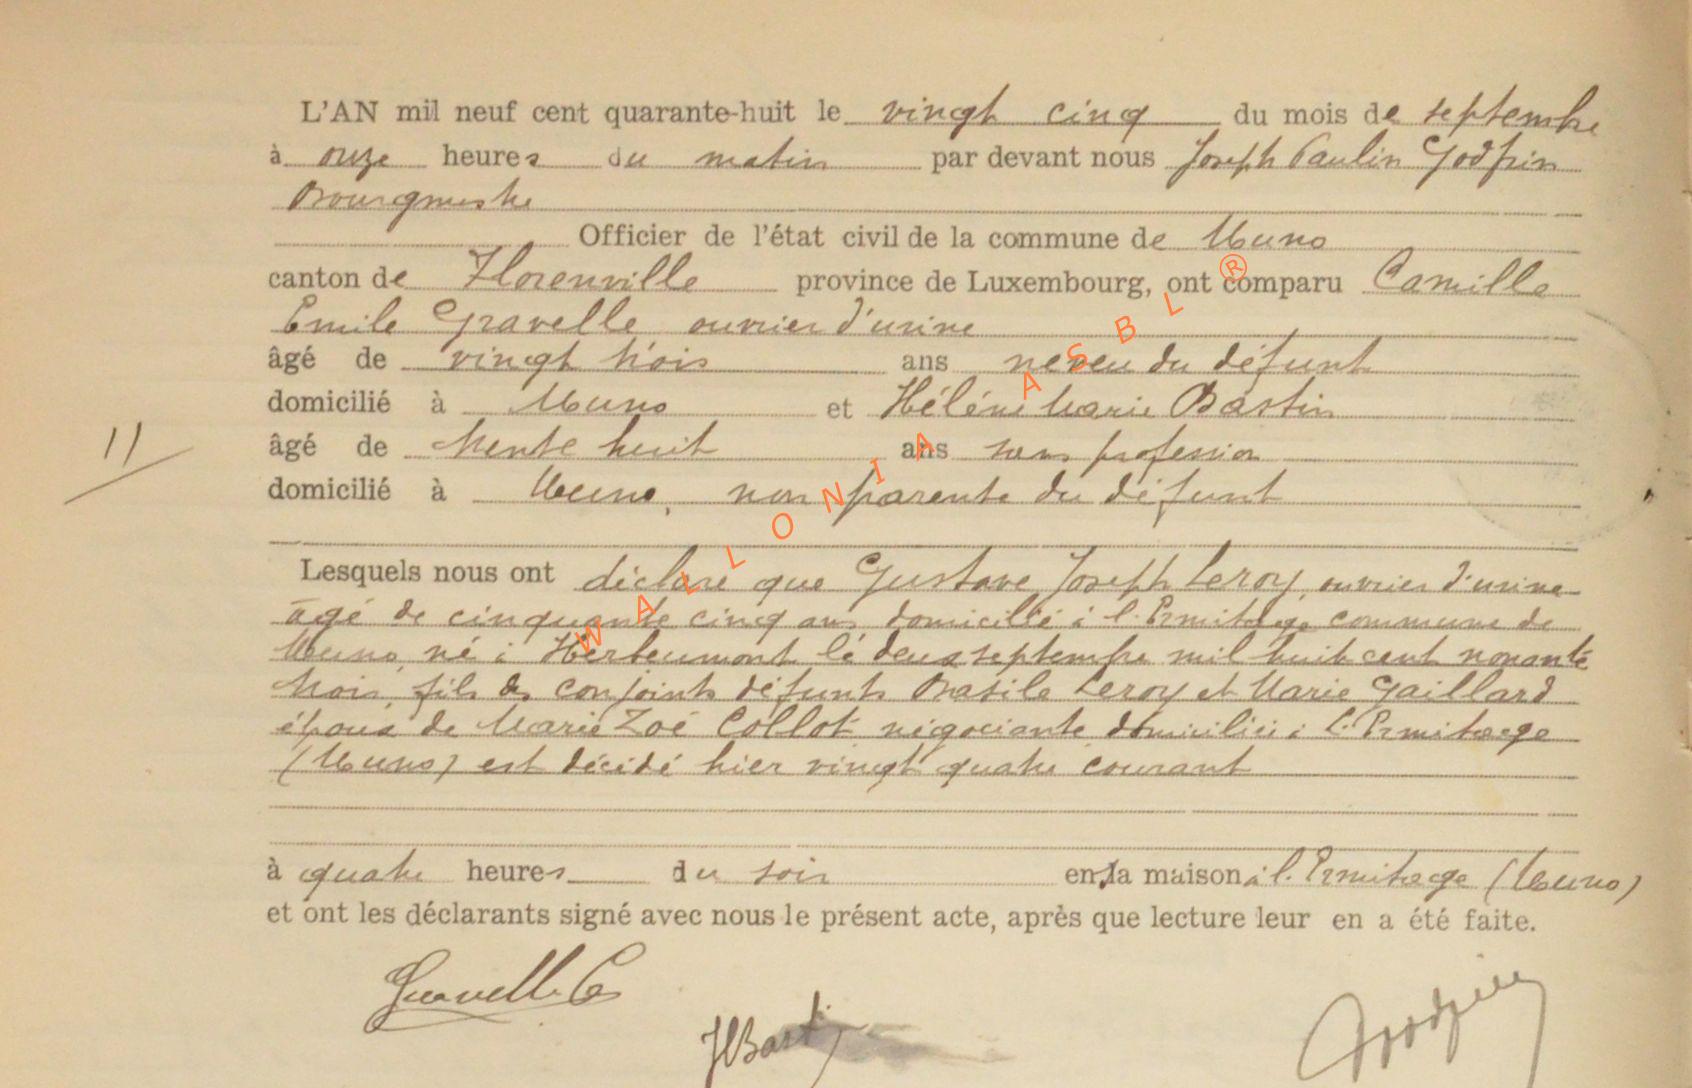 L'AN mil neuf cent quarante-huit le vingt cinq du mois de septembre
à onze heures du matin par devant nous Joseph Paulin Godfrin
Bourgmestre
Officier de l'état civil de la commune de Muno
canton de Florenville province de Luxembourg, ont comparu Camille
Emile Gravelle ouvrier d'usine
âgé de vingt trois ans neveu du défunt
domicilié à Muno et Hélène Marie Bastin
11
âgé de trente huit ans sans profession
domicilié à Muno, non parente du défunt
Lesquels nous ont déclaré que Gustave Joseph Leroy, ouvrier d'usine
âgé de cinquante cinq ans domicilié à l'Ermitage commune de
Muno, né à Herbeumont le deux septembre mil huit cent nonante
trois, fils des conjoints défunts Basile Leroy et Marie Gaillard
époux de Marie Zoé Collot négociante domiciliée à l'Ermitage
(Muno) est décédé hier vingt quatre courant
à quatre heures du soir en la maison à l'Ermitage (Muno)
et ont les déclarants signé avec nous le présent acte, après que lecture leur en a été faite.
Gravelle C
HBasti
Godfrin
WALLONIA ASBL ®